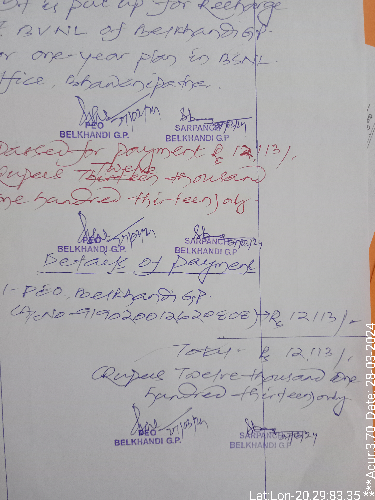 It is put up for Recharge
of BVNL of Belkhandi G.P.
for one-year plan in BSNL
office, Bhawanipatna.
PEO
BELKHANDI G.P.
SARPANCH
BELKHANDI G.P.
Passed for payment Rs 12,113/-
Rupees Twelve thousand
one hundred thirteen only.
PEO
BELKHANDI G.P.
SARPANCH
BELKHANDI G.P.
Details of payment
1- PEO, Belkhandi G.P.
Rs 12113/-
Total - Rs 12,113/-
(Rupees Twelve thousand one
hundred thirteen only.
PEO
BELKHANDI G.P.
SARPANCH
BELKHANDI G.P.
Lat:Lon-20.29:83.35
***Acur:3.70 Date: 28-03-2024